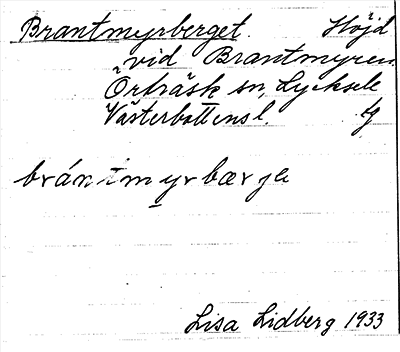 Brantmyrberget. Höjd
vid Brantmyren.
Örträsk sn, Lycksele
Västerbottensl. tg
brántmyrbærje
Lisa Lidberg 1933